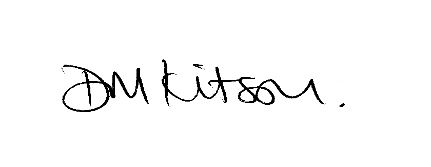 DM Kitson.